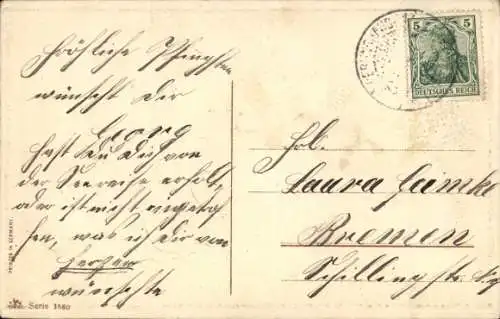 Fröhliche Pfingsten
wünscht Dir
Georg
Hast Du Dich von
der Seereise erholt,
oder ist nicht eingetrof
fen, was ich Dir von
Herzen
wünschte
PRINTED IN GERMANY.
Serie 1460
5 5
DEUTSCHES REICH
Frl.
Laura Geimke
Bremen
Schillingstr.